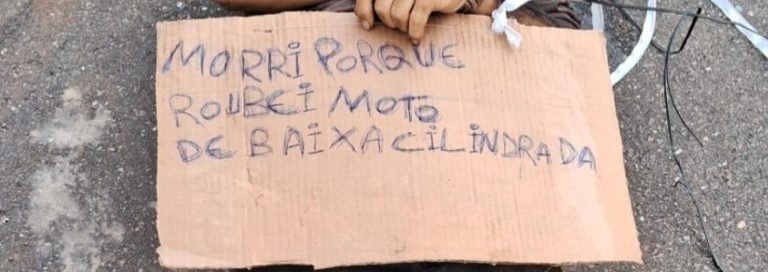 MORRI PORQUE
ROUBEI MOTO
DE BAIXA CILINDRADA